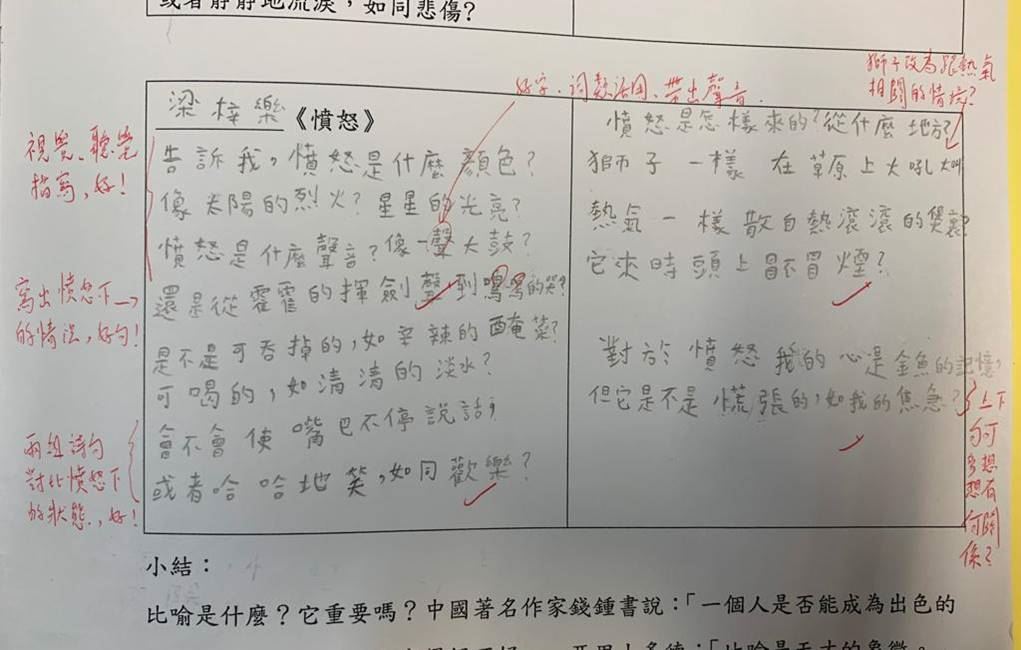 或者靜靜地流淚，如同悲傷?
好字、詞類活用、帶出聲音.
獅子改為跟熱氣
相關的情境?
梁梓樂《憤怒》
告訴我，憤怒是什麼顏色?
像太陽的烈火? 星星的光亮?
憤怒是什麼聲音? 像一聲大鼓?
還是從霍霍的揮劍聲到嗚嗚的哭?
是不是可吞掉的，如辛辣的醃菜?
可喝的，如清清的淡水?
會不會使嘴巴不停說話，
或者哈哈地笑，如同歡樂?
視覺、聽覺
描寫，好!
寫出憤怒下
的情況，好句!
兩組詩句
對比憤怒下
的狀態，好!
憤怒是怎樣來的? 從什麼地方?
獅子一樣 在草原上大吼大叫
熱氣一樣散自熱滾滾的煲裏?
它來時頭上冒不冒煙?
對於憤怒我的心是金魚的記憶，
但它是不是慌張的，如我的焦急?
上下
句可
多想
想有
何關
係?
小結：
比喻是什麼？它重要嗎？中國著名作家錢鍾書說：「一個人是否能成為出色的